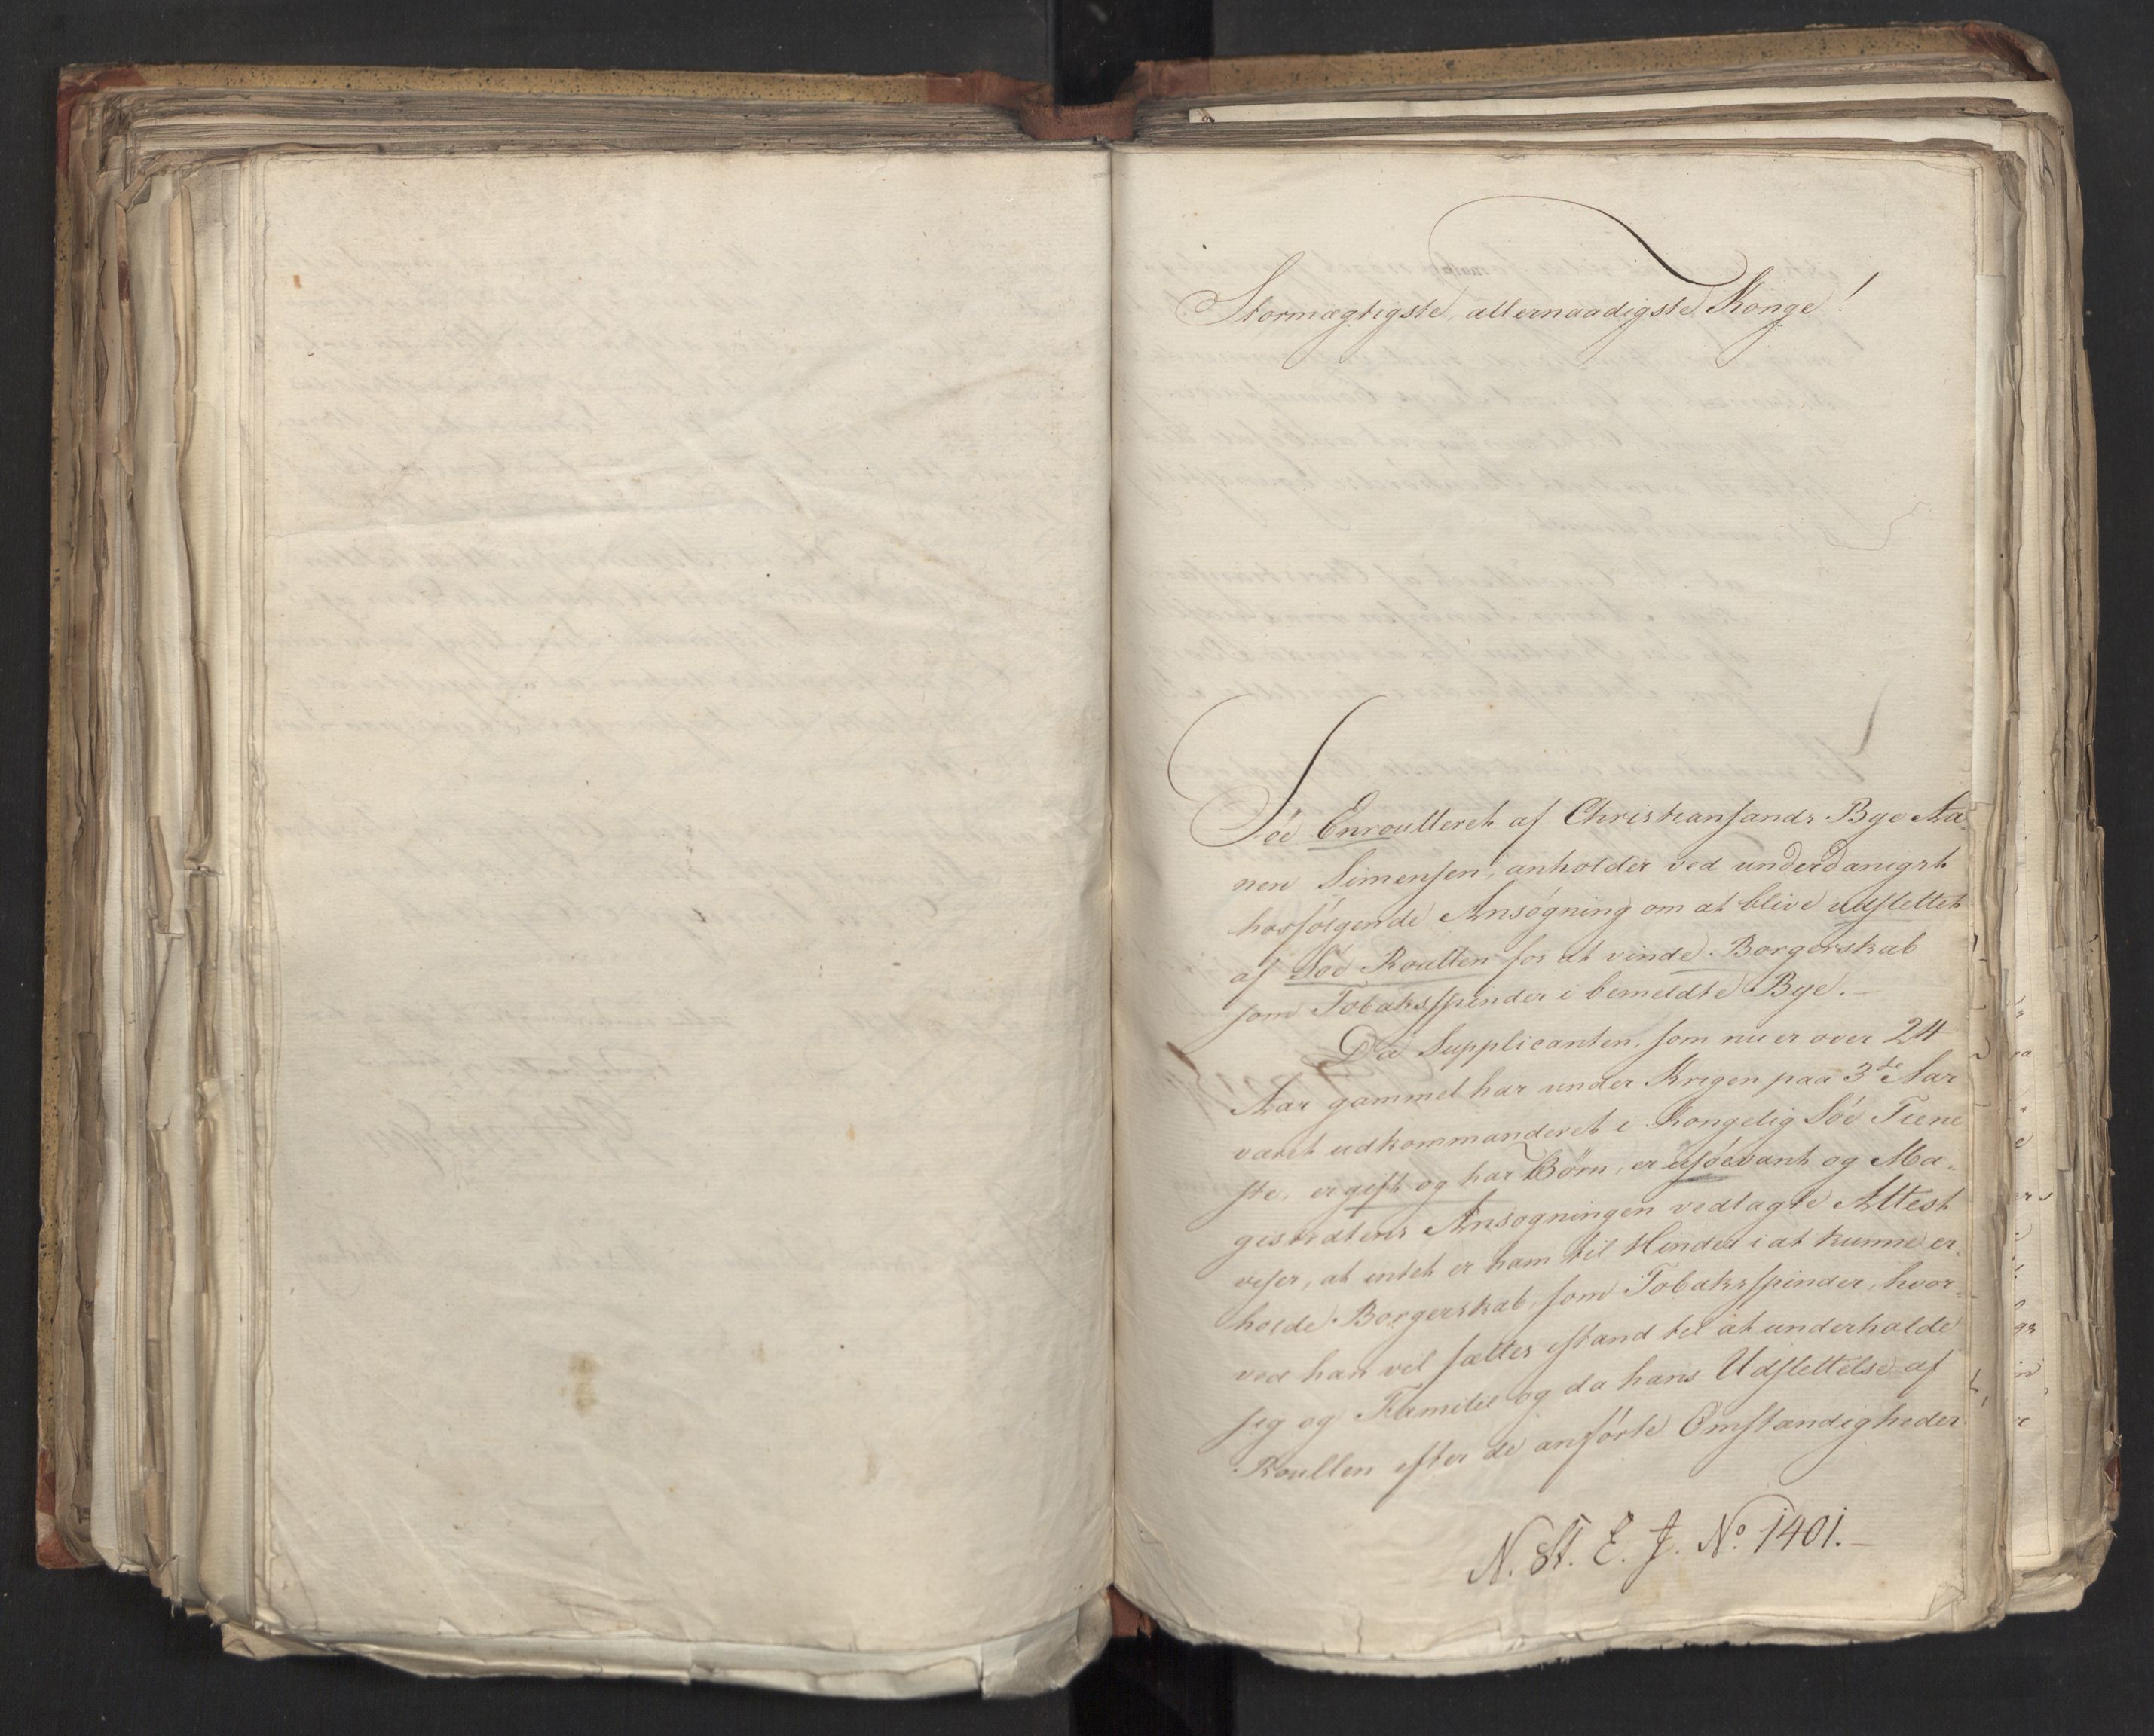 Stormægtigste, allernaadigste Konge!
Söe Enroulleret af Christiansands Bye Aa„
nen Simensen, anholder ved underdanigst
hosfølgende Ansøgning om at blive udslettet
af Söe Roullen for at vinde Borgerskab
som Tobaksspinder i bemeldte Bye.—
Da Supplicanten, som nu er over 24
Aar gammel har under Krigen paa 3de Aar
været udkommanderet i Kongelig Söe Tiene
ste, er gift og har Børn, er usöevant og Ma„
gistratens Ansøgningen vedlagte Attest
viser, at intet er ham til Hinder i at kunne er„
holde Borgerskab som Tobaksspinder, hvor„
ved han vil sættes istand til at underholde
sig og Familie og da hans Udslettelse af
Roullen efter de anførte Omstændigheder
N. St. E. J. No. 1401.—